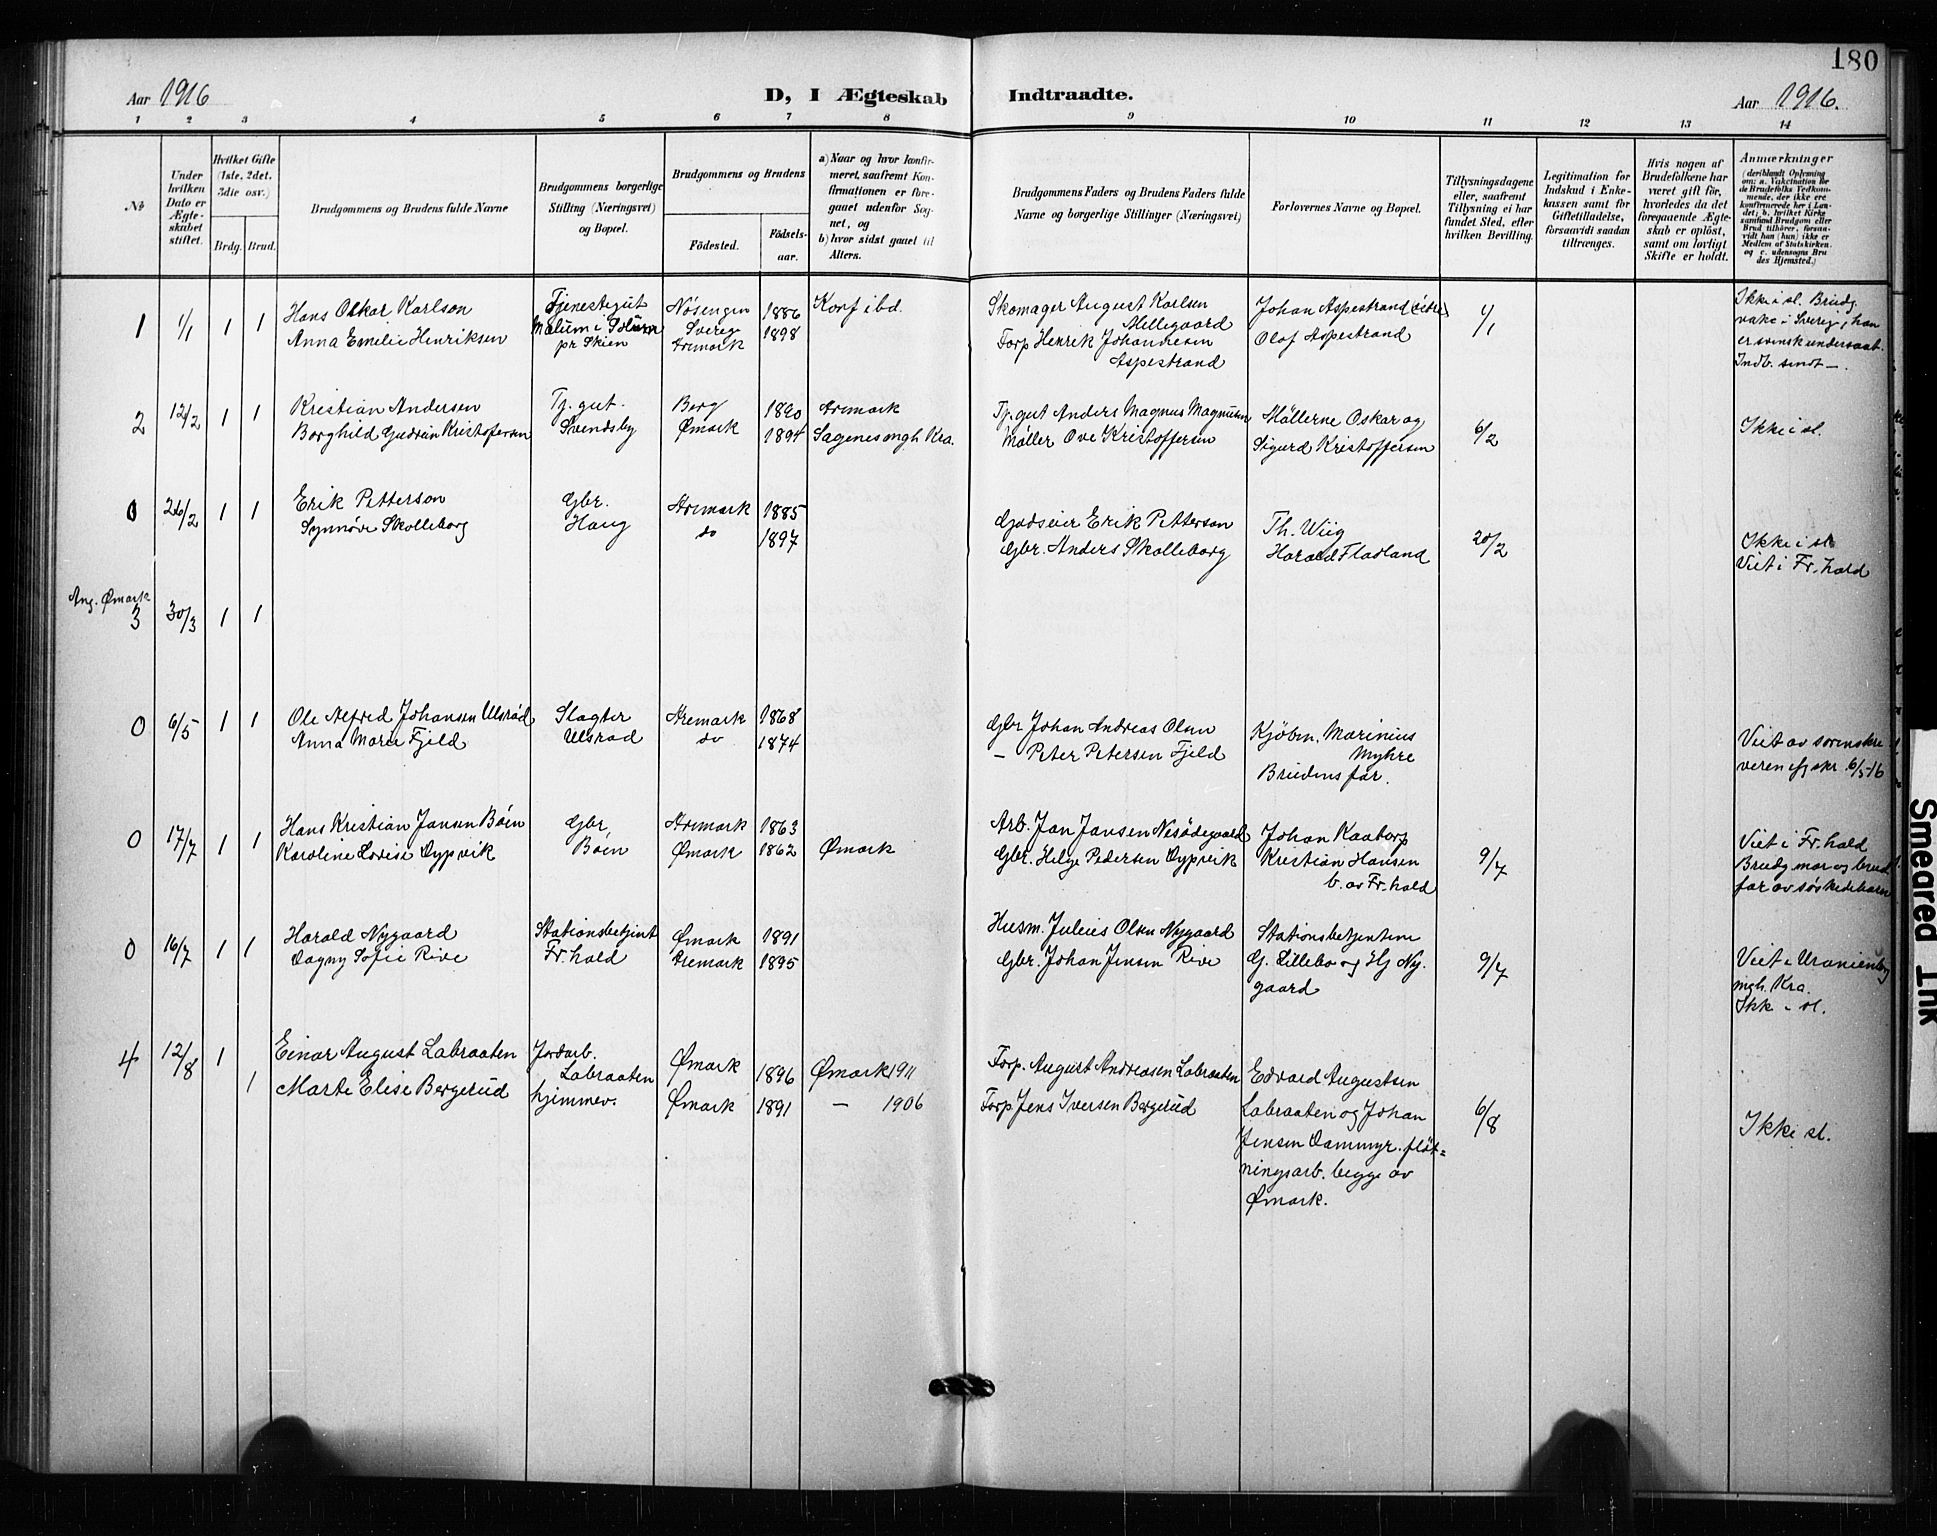 180
Aar 1916
D, I Ægteskab Indtraadte.
Aar 1916.
1 2 3 4 5 6 7 8 9 10 11 12 13 14
№
Under
hvilken
Dato er
Ægte-
skabet
stiftet.
Hvilket Gifte
(1ste. 2det.
3die osv.)
Brdg. Brud.
Brudgommens og Brudens fulde Navne
Brudgommens borgerlige
Stilling (Næringsvei)
og Bopæl.
Brudgommens og Brudens
Födested.
Födsels-
aar.
a) Naar og hvor konfir-
meret, saafremt Kon-
firmationen er fore-
gaaet udenfor Sog-
net, og
b) hvor sidst gaaet til
Alters.
Brudgommens Faders og Brudens Faders fulde
Navne og borgerlige Stillinger (Næringsvei)
Forlovernes Navne og Bopæl.
Tillysningsdagene
eller, saafremt
Tillysning ei har
fundet Sted, efter
hvilken Bevilling.
Legitimation for
Indskud i Enke-
kassen samt for
Giftetilladelse,
forsaavidt saadan
tiltrænges.
Hvis nogen af
Brudefolkene har
været gift för,
hvorledes da det
foregaaende Ægte-
skab er oplöst,
samt om lovligt
Skifte er holdt.
Anmærkninger
(deriblandt Oplysning
om: a. Vakcination for
de Brudefolks Vedkom-
mende, der ikke ere
konfirmerede her i Lan-
det; b. hvilket Kirke
samfund Brudgom eller
Brud tilhörer, forsaa-
vidt han (hun) ikke er
Medlem af Statskirken.
og c. udensogns Bru
des Hjemsted.)
1 1/1 1 1
Hans Oskar Karlson
Anna Emilie Henriksen
Tjenestegut
Mælum i Solum
pr Skien
Nösengen
Sverig
Aremark
1886
1898
Konf i bd.
Skomager August Karlsen
Millegaard
Torp Henrik Johannesen
Aspestrand
Johan Aspestrand
Olaf Aspestrand
1/1
Ikke i sl. Brudg.
vakc i Sverig, han
er svensk undersaat.
Indb. sendt –.
2 12/2 1 1
Kristian Andersen
Borghild Gudrun Kristofersen
Tj. gut.
Svendsby
Berg
Ømark
1890
1894
Aremark
Sagenes mgh Kra.
Tj. gut Anders Magnus Magnusen
Møller Ove Kristoffersen
Møllerne Oskar og
Sigurd Kristoffersen
6/2
Ikke i sl.
0 26/2 1 1
Erik Petterson
Synnøve Skolleborg
Gbr.
Haug
Aremark
do
1885
1897
Godseier Erik Petterson
Gbr. Anders Skolleborg
Th. Wiig
Harald Fladland
20/2
Ikke i sl
Viet i Fr.hald
Ang. Ømark
3 30/3 1 1
0 6/5 1 1
Ole Alfred Johansen Ulsröd
Anna Marie Fjeld
Slagter
Ulsrød
Aremark
do
1868
1874
Gbr Johan Andreas Olsen
– Peter Petersen Fjeld
Kjøbm. Marinius
Myhre
Brudens far.
Viet av sorenskri
veren efg skr. 6/5-16
0 17/7 1 1
Hans Kristian Jansen Böen
Karoline Lovise Dypvik
Gbr
Böen
Aremark
Ømark
1863
1862
Ømark
Arb. Jan Jansen Nesödegaard
Gbr. Helge Pedersen Dypvik
Johan Kaatorp
Kristian Hansen
b. av Fr.hald
9/7
Viet i Fr.hald
Brudg mor og brud
far av söskedebarn
0 16/7 1 1
Harald Nygaard
Dagny Sofie Rive
Stationsbetjent
Fr.hald
Ømark
Aremark
1891
1895
Husm. Julius Olsen Nygaard
Gbr. Johan Jensen Rive
Stationsbetjentene
G. Lillebo og Hj Ny.
gaard
9/7
Viet i Uranienborg
mgh. Kra.
Ikk i sl.
4 12/8 1 1
Einar August Labraaten
Marte Elise Bergerud
Jordarb.
Labraaten
hjemmev.
Ømark
Ømark
1896
1891
Ømark 1911
– 1906
Torp. August Andreasen Labraaten
Torp Jens Iversen Bergerud
Edvard Augustsen
Labraaten og Johan
Jensen Dammyr. fløt=
ningsarb. begge av
Ømark.
6/8
Ikke sl.
Smeared Ink